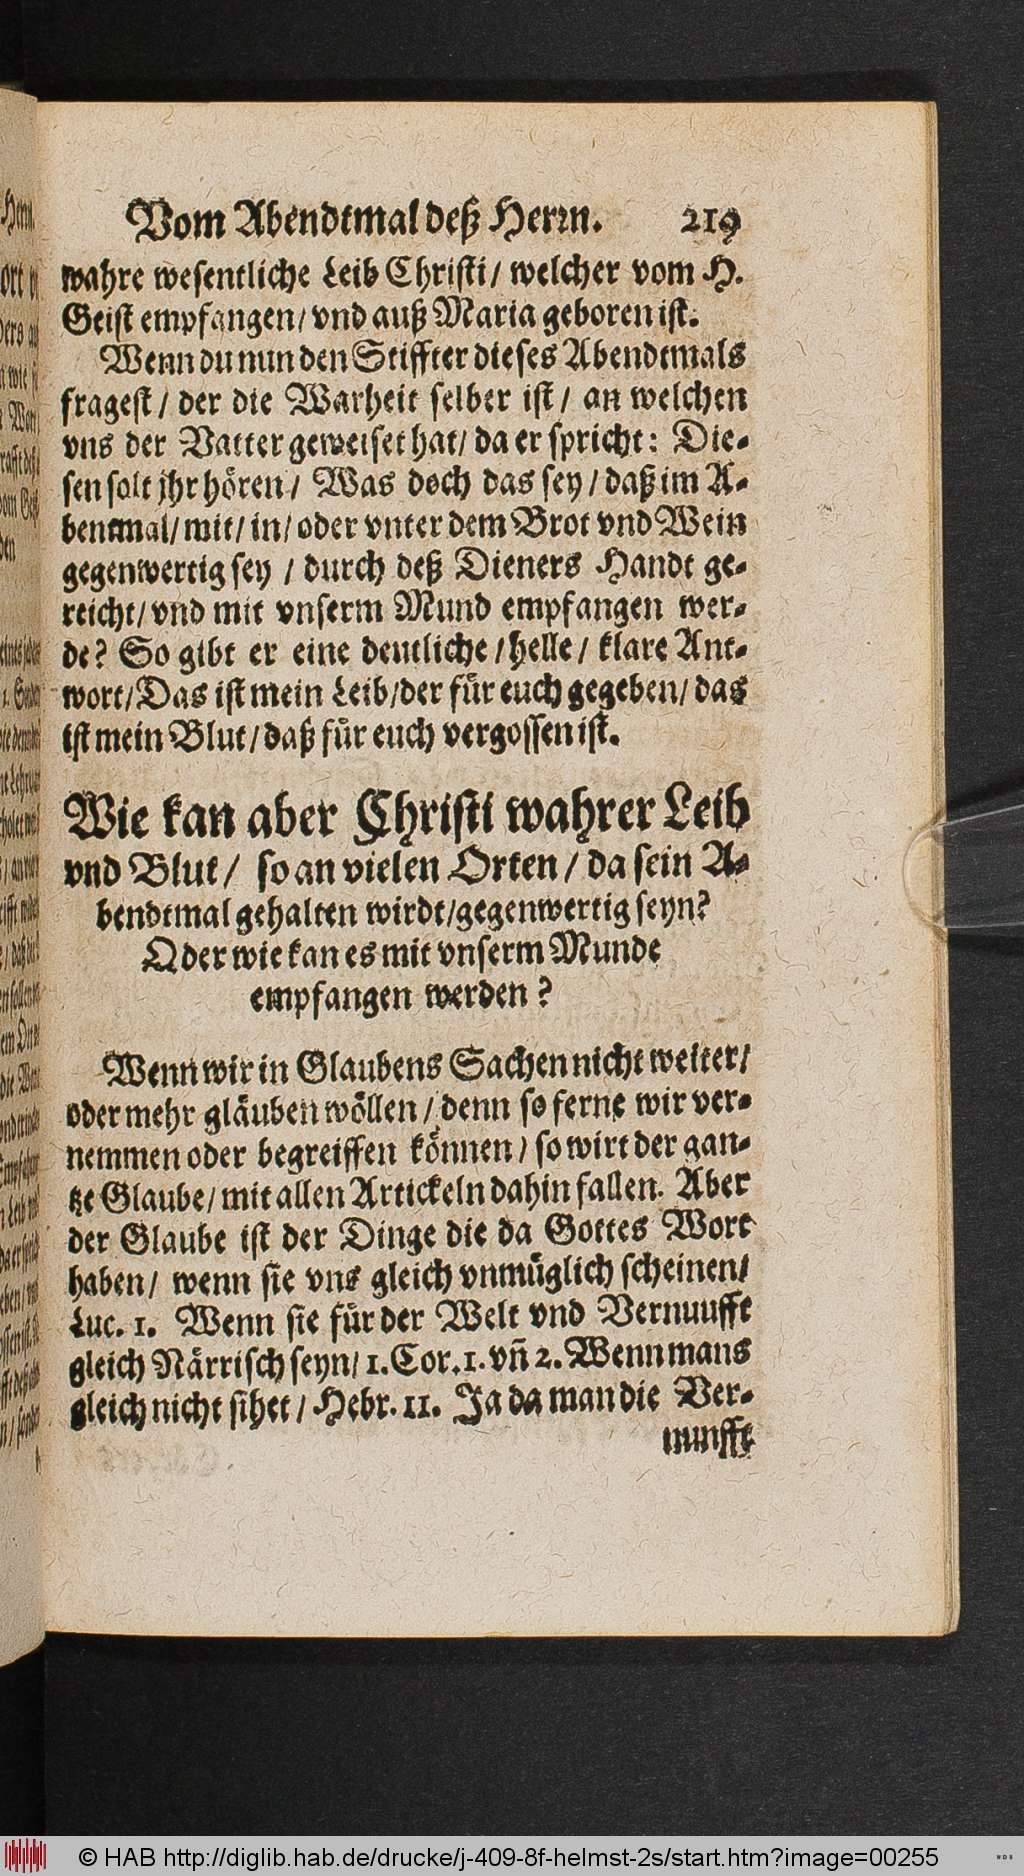 Vom Abendtmal deß Herrn. 219
wahre wesentliche Leib Christi/ welcher vom H.
Geist empfangen/ vnd auß Maria geboren ist.
Wenn du nun den Stiffter dieses Abendtmals
fragest/ der die Warheit selber ist/ an welchen
vns der Vatter geweiset hat/ da er spricht: Die-
sen solt jhr hören/ Was doch das sey/ daß im A-
bentmal/ mit/ in/ oder vnter dem Brot vnd Wein
gegenwertig sey / durch deß Dieners Handt ge-
reicht/ vnd mit vnserm Mund empfangen wer-
de? So gibt er eine deutliche / helle / klare Ant-
wort/ Das ist mein Leib/ der für euch gegeben/ das
ist mein Blut/ daß für euch vergossen ist.
Wie kan aber Christi wahrer Leib
vnd Blut/ so an vielen Orten/ da sein A-
bendtmal gehalten wirdt/ gegenwertig seyn?
Oder wie kan es mit vnserm Munde
empfangen werden?
Wenn wir in Glaubens Sachen nicht weiter/
oder mehr gläuben wöllen/ denn so ferne wir ver-
nemmen oder begreiffen können/ so wirt der gan-
tze Glaube/ mit allen Artickeln dahin fallen. Aber
der Glaube ist der Dinge die da Gottes Wort
haben/ wenn sie vns gleich vnmüglich scheinen/
Luc. 1. Wenn sie für der Welt vnd Vernuufft
gleich Närrisch seyn/ 1. Cor. 1. vñ 2. Wenn mans
gleich nicht sihet/ Hebr. 11. Ja da man die Ver-
nunfft
© HAB http://diglib.hab.de/drucke/j-409-8f-helmst-2s/start.htm?image=00255